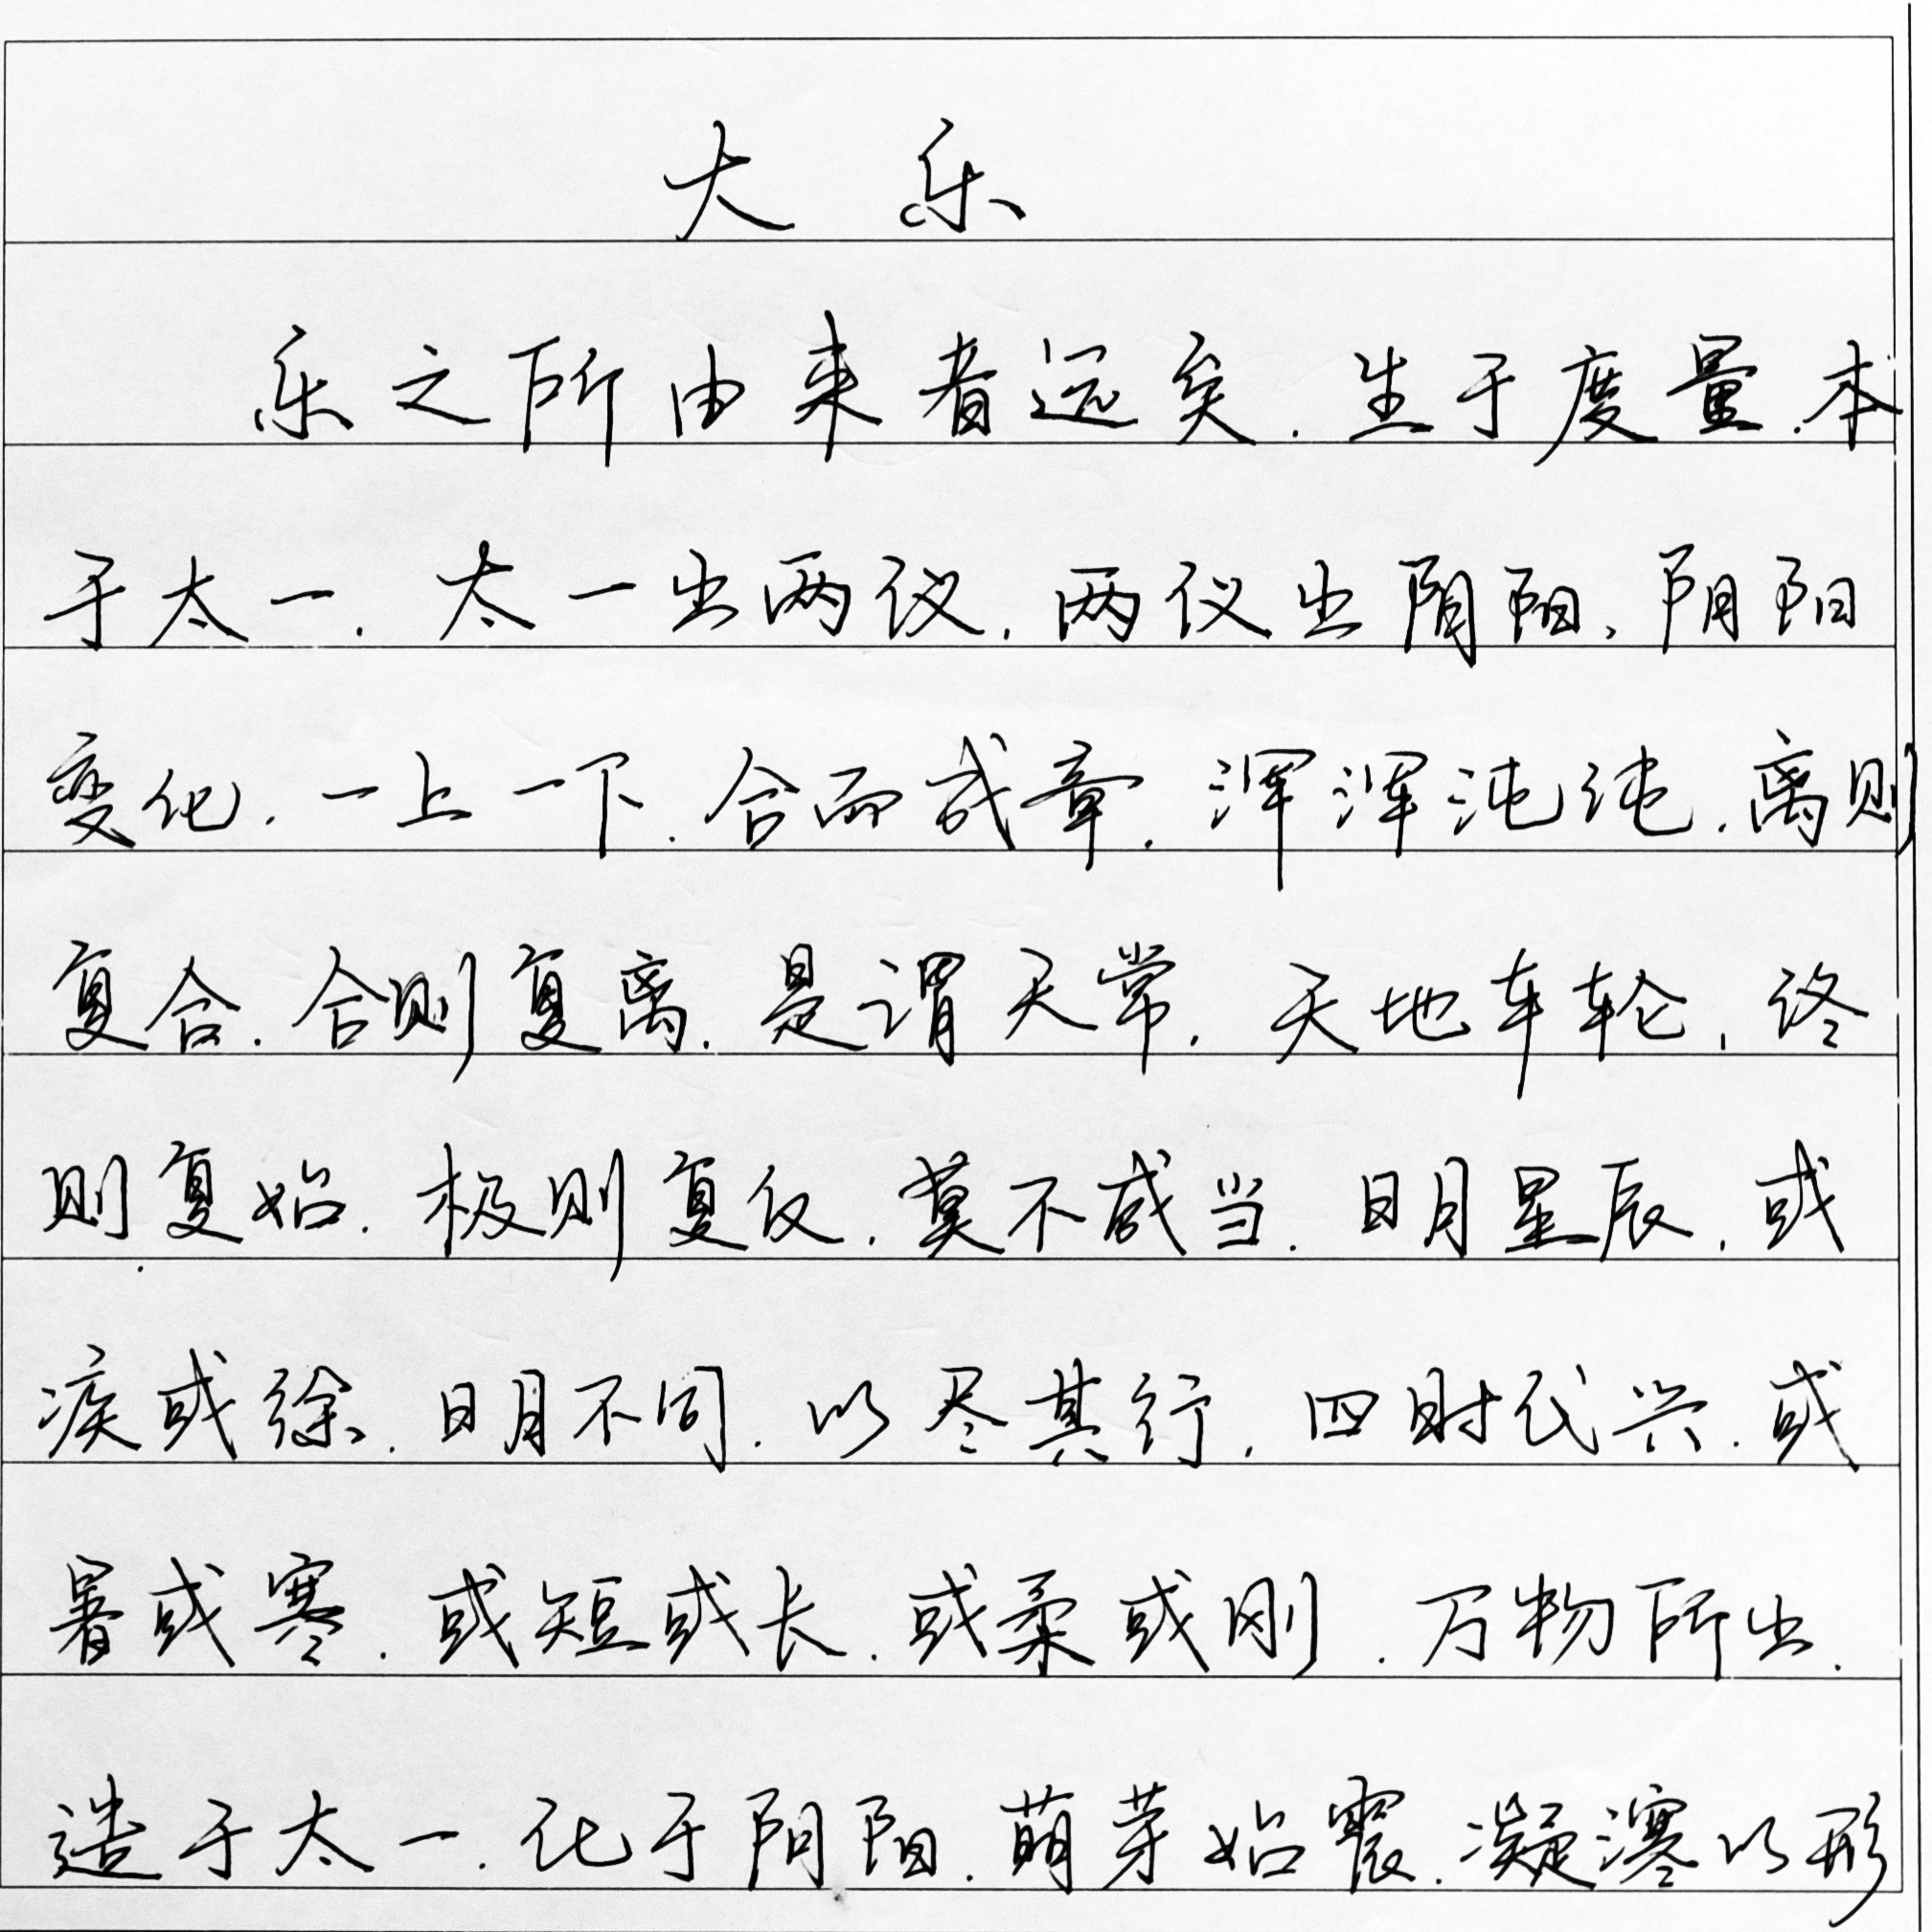 大乐
乐之所由来者远矣.生于度量.本
于太一.太一出两仪.两仪出阴阳.阴阳
变化.一上一下.合而成章.浑浑沌沌.离则
复合.合则复离.是谓天常.天地车轮.终
则复始.极则复反.莫不咸当.日月星辰.或
疾或徐.日月不同.以尽其行.四时代兴.或
暑或寒.或短或长.或柔或刚.万物所出.
造于太一.化于阴阳.萌芽始震.凝㵯以形